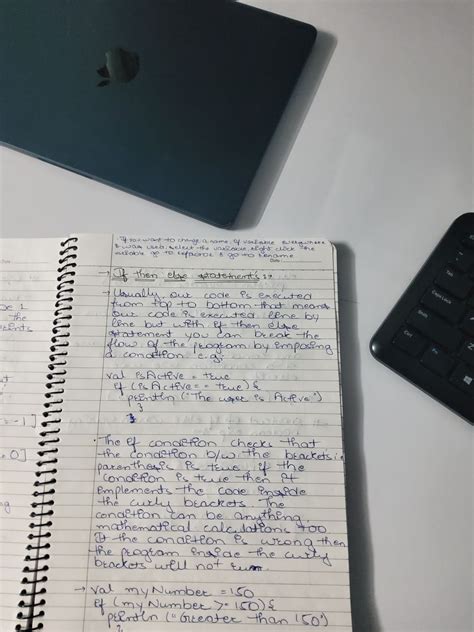 If you want to change a name of variable everywhere
it was used, select the variable, right click the
variable go to refactor & go to rename
→ If then else statements :-
→ Usually our code is executed
from top to bottom that means
our code is executed line by
line but with if then else
statement you can break the
flow of the program by imposing
a condition e.g.
val isActive = true
if (isActive == true) {
println ("The user is Active")
}
• The if condition checks that
the condition b/w the brackets i.e
parenthesis is true if the
condition is true then it
implements the code inside
the curly brackets. The
condition can be anything
mathematical calculations too
If the condition is wrong then
the program inside the curly
brackets will not run.
→ val myNumber = 150
if (myNumber >= 150) {
println ("Greater than 150")
}
the
= 0]